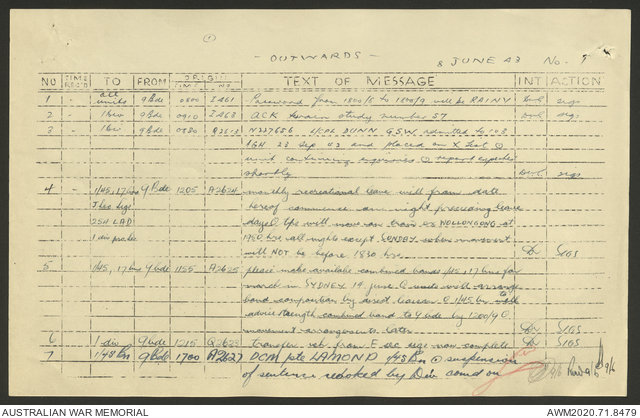 - OUTWARDS -
8 JUNE 43 No. 9
NO TIME REC'D TO FROM TEXT OF MESSAGE INT ACTION
1 all units 9 Bde 0800 I 261 Password from 1800/8 to 1800/9 will be RAINY sigs
2 9 Bde 0910 I 263 ACK terrain study number 57 sigs
3 9 Bde 0930 A2613 N227656 L/CPL DUNN G.S.W. admitted to 103
AGH 23 Sep 42 and placed on X list
unit continuing enquiries report expected
shortly sigs
4 1/45, 17 bns 9 Bde 1205 A2624 monthly recreational leave will from date
sigs hereof commence on night preceding leave
25H LAD day tps will move on train ex WOLLONGONG at
1 div 1950 hrs all nights except SUNDAY when movement
will NOT be before 1830 hrs SIGS
5 1/45, 17 bns 9 bde 1155 A2625 please make available combined bands 1/45, 17 bns for
march in SYDNEY 19 June units will arrange
band composition by direct liaison 1/45 bn will
advise strength combined band to 9 bde by 1200/9
movement arrangements later SIGS
6 1 div 9 bde 1215 Q2628 Transfer veh from E sec sigs now complete SIGS
7 1/45 Bn 9 Bde 1700 A2627 DCM pte LAMOND 1/45 Bn suspension
of sentence revoked by Div comd on
9/6
AUSTRALIAN WAR MEMORIAL
AWM2020.71.8479